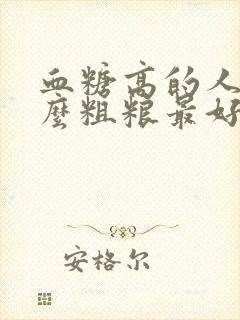 血糖高的人
麼粗粮最好
安格尔